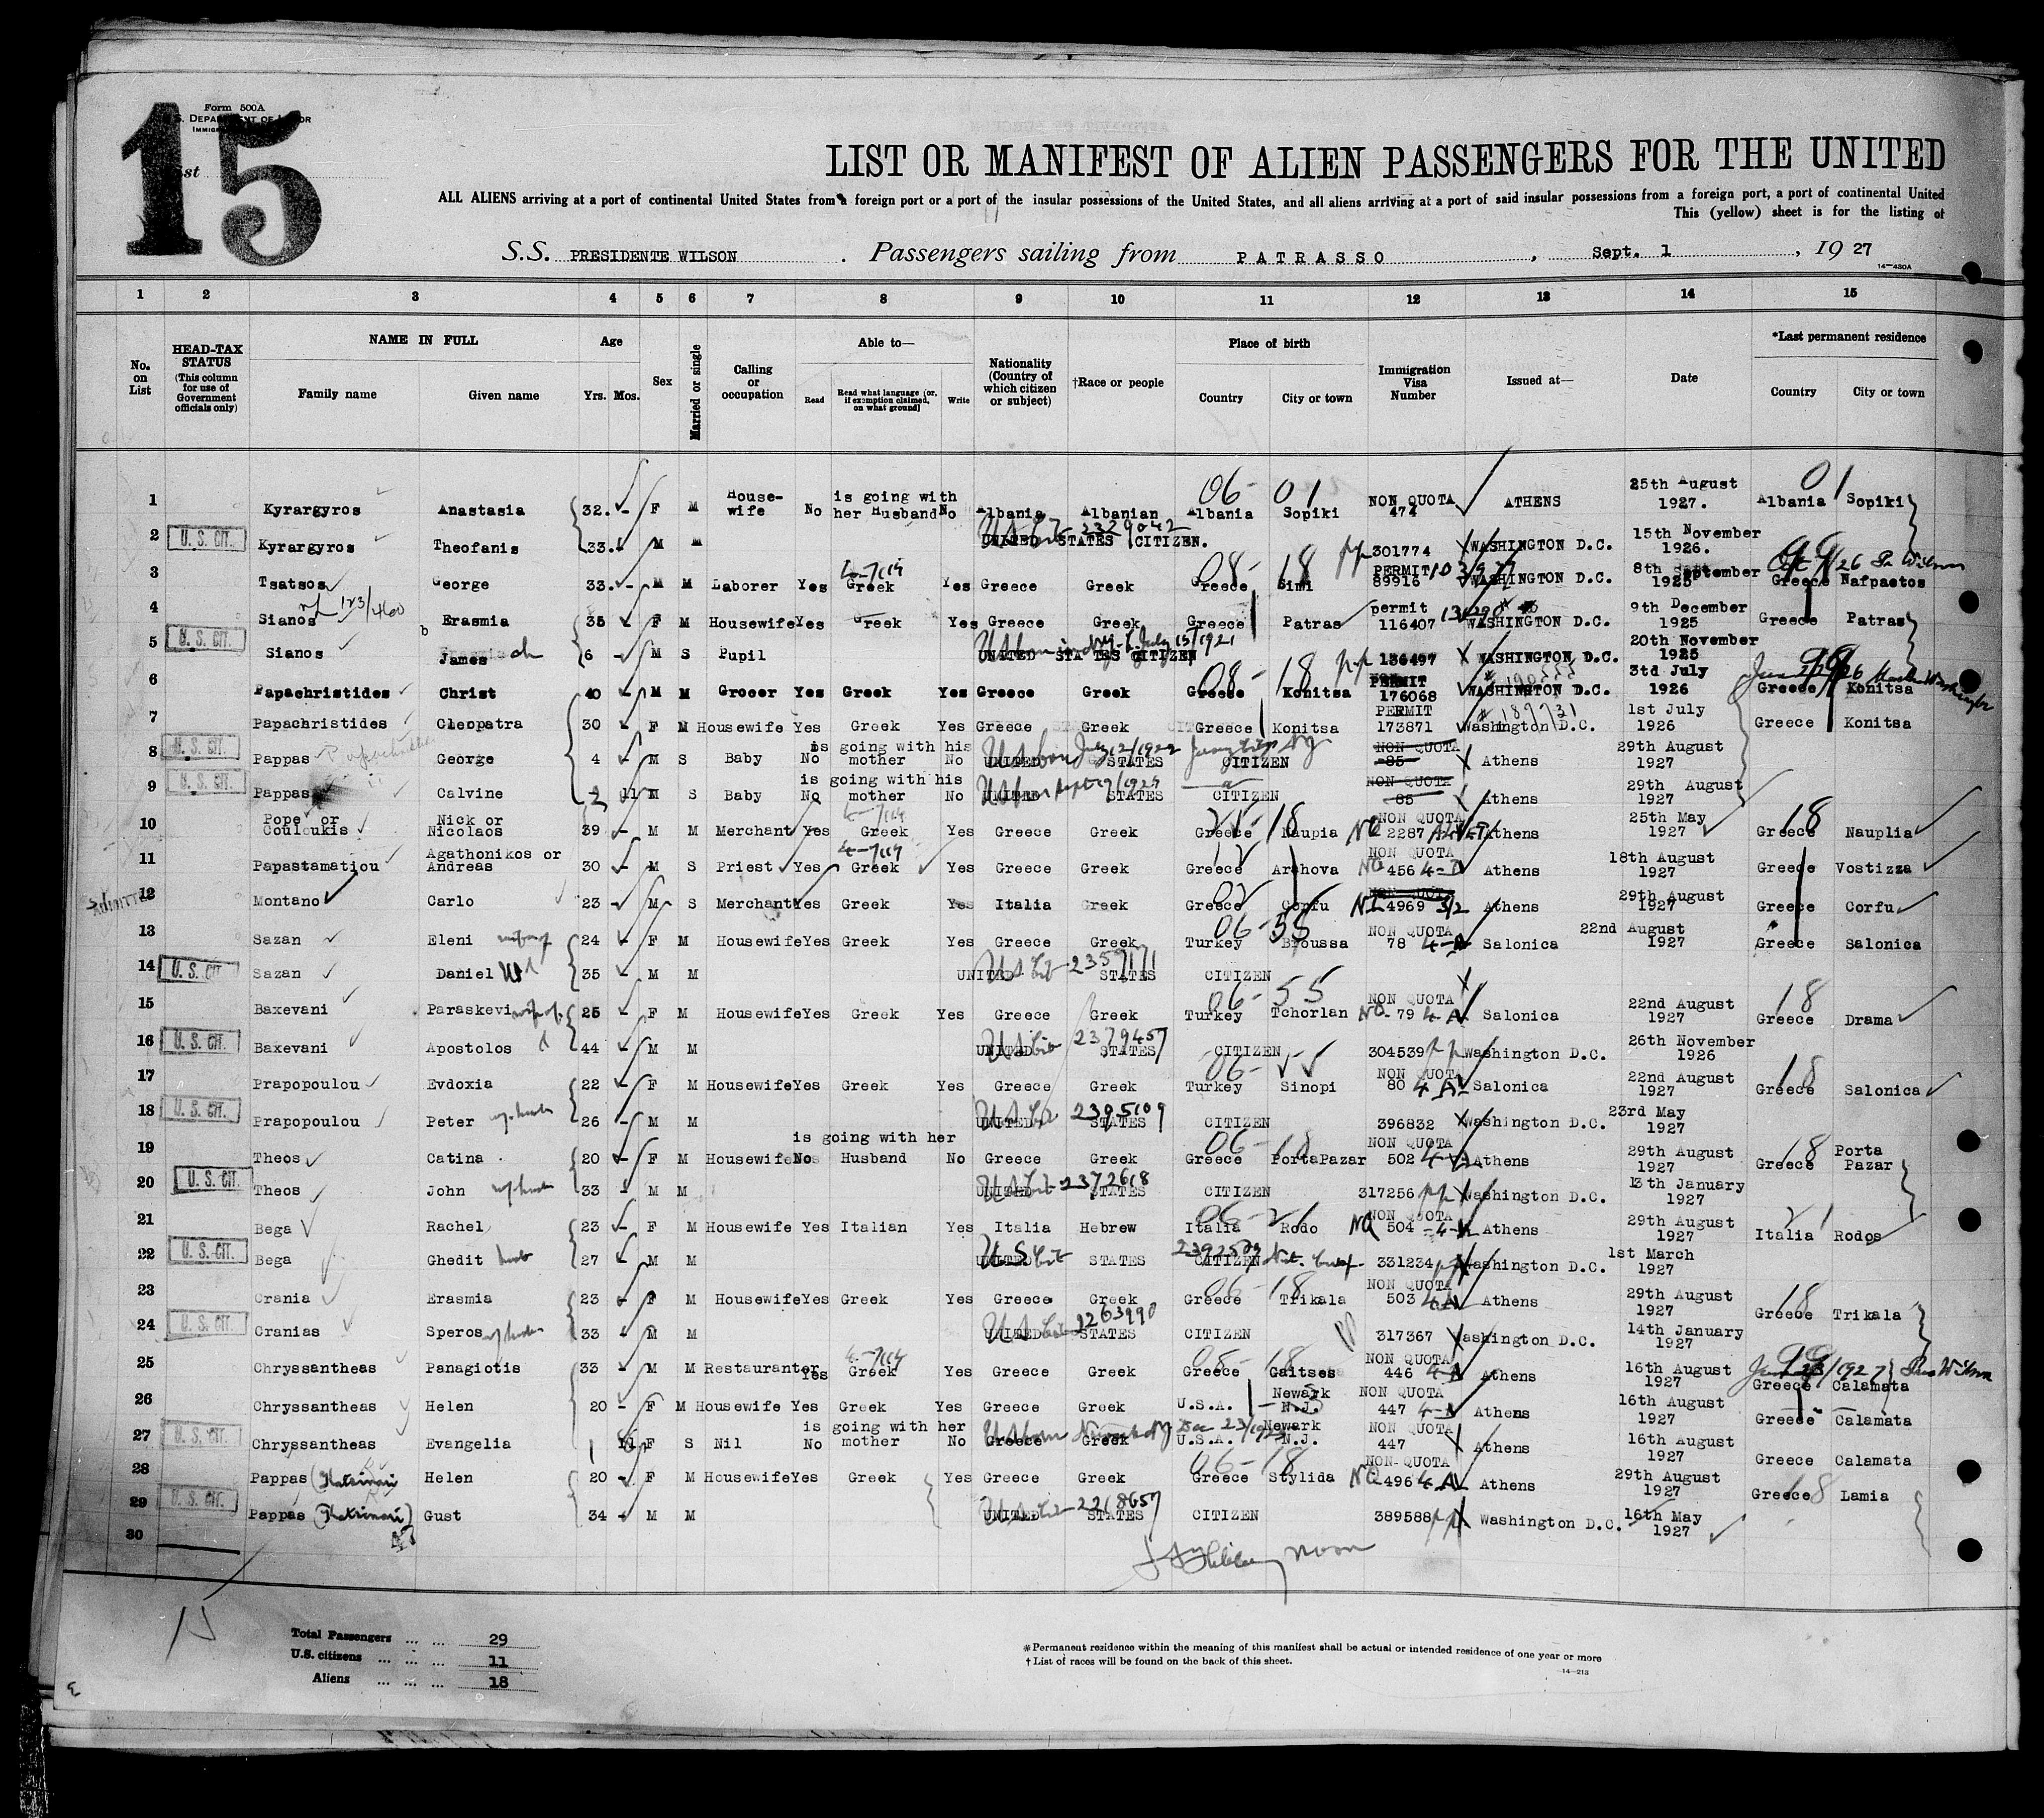 Form 500A
15
LIST OR MANIFEST OF ALIEN PASSENGERS FOR THE UNITED
ALL ALIENS arriving at a port of continental United States from a foreign port or a port of the insular possessions of the United States, and all aliens arriving at a port of said insular possessions from a foreign port, a port of continental United
This (yellow) sheet is for the listing of
S.S. PRESIDENTE WILSON . Passengers sailing from PATRASSO , Sept. 1 , 19 27
14—430A
1 2 3 4 5 6 7 8 9 10 11 12 13 14 15
No. on List
HEAD-TAX STATUS (This column for use of Government officials only)
NAME IN FULL Family name Given name
Age Yrs. Mos.
Sex
Married or single
Calling or occupation
Able to— Read Read what language [or, if exemption claimed, on what ground] Write
Nationality (Country of which citizen or subject)
†Race or people
Place of birth Country City or town
Immigration Visa Number
Issued at—
Date
*Last permanent residence Country City or town
1 Kyrargyros Anastasia 32 F M House-wife No is going with her Husband No Albania Albanian Albania Sopiki NON QUOTA 474 ATHENS 25th August 1927. Albania Sopiki
2 U. S. CIT. Kyrargyros Theofanis 33 M M UNITED STATES CITIZEN. 301774 WASHINGTON D.C. 15th November 1926.
3 Tsatsos George 33 M M Laborer Yes Greek Yes Greece Greek Greece Simi PERMIT 89916 WASHINGTON D.C. 8th September 1925 Greece Nafpactos
4 Sianos Erasmia 35 F M Housewife Yes Greek Yes Greece Greek Greece Patras permit 116407 WASHINGTON D.C. 9th December 1925 Greece Patras
5 U. S. CIT. Sianos James 6 M S Pupil UNITED STATES CITIZEN 136497 WASHINGTON D.C. 20th November 1925
6 Papachristides Christ 40 M M Grocer Yes Greek Yes Greece Greek Greece Konitsa PERMIT 176068 WASHINGTON D.C. 3td July 1926 Greece Konitsa
7 Papachristides Cleopatra 30 F M Housewife Yes Greek Yes Greece Greek Greece Konitsa PERMIT 173871 Washington D.C. 1st July 1926 Greece Konitsa
8 U. S. CIT. Pappas George 4 M S Baby No is going with his mother No UNITED STATES CITIZEN NON QUOTA 85 Athens 29th August 1927
9 U. S. CIT. Pappas Calvine 2 11 M S Baby No is going with his mother No UNITED STATES CITIZEN NON QUOTA 85 Athens 29th August 1927
10 Pope or Couloukis Nick or Nicolaos 39 M M Merchant Yes Greek Yes Greece Greek Greece Naupia NON QUOTA 2287 Athens 25th May 1927 Greece Nauplia
11 Papastamatiou Agathonikos or Andreas 30 M S Priest Yes Greek Yes Greece Greek Greece Arahova NON QUOTA 456 Athens 18th August 1927 Greece Vostizza
12 Montano Carlo 23 M S Merchant Yes Greek Yes Italia Greek Greece Corfu NON QUOTA 4969 Athens 29th August 1927 Greece Corfu
13 Sazan Eleni wife of 24 F M Housewife Yes Greek Yes Greece Greek Turkey Broussa NON QUOTA 78 Salonica 22nd August 1927 Greece Salonica
14 U. S. CIT. Sazan Daniel 35 M M UNITED STATES CITIZEN
15 Baxevani Paraskevi wife of 25 F M Housewife Yes Greek Yes Greece Greek Turkey Tchorlan NON QUOTA 79 Salonica 22nd August 1927 Greece Drama
16 U. S. CIT. Baxevani Apostolos 44 M M UNITED STATES CITIZEN 2379457 304539 Washington D.C. 26th November 1926
17 Prapopoulou Evdoxia 22 F M Housewife Yes Greek Yes Greece Greek Turkey Sinopi NON QUOTA 80 Salonica 22nd August 1927 Greece Salonica
18 U. S. CIT. Prapopoulou Peter 26 M M UNITED STATES CITIZEN 2395109 396832 Washington D.C. 23rd May 1927
19 Theos Catina 20 F M Housewife No is going with her Husband No Greece Greek Greece PortaPazar NON QUOTA 502 Athens 29th August 1927 Greece Porta Pazar
20 U. S. CIT. Theos John 33 M M UNITED STATES CITIZEN 2372618 317256 Washington D.C. 13th January 1927
21 Bega Rachel 23 F M Housewife Yes Italian Yes Italia Hebrew Italia Rodo NON QUOTA 504 Athens 29th August 1927 Italia Rodos
22 U. S. CIT. Bega Ghedit 27 M M UNITED STATES CITIZEN 331234 Washington D.C. 1st March 1927
23 Crania Erasmia 23 F M Housewife Yes Greek Yes Greece Greek Greece Trikala NON QUOTA 503 Athens 29th August 1927 Greece Trikala
24 U. S. CIT. Cranias Speros 33 M M UNITED STATES CITIZEN 2263990 317367 Washington D.C. 14th January 1927
25 Chryssantheas Panagiotis 33 M M Restauranter Yes Greek Yes Greece Greek Greece Gaitses NON QUOTA 446 Athens 16th August 1927 Greece Calamata
26 Chryssantheas Helen 20 F M Housewife Yes Greek Yes Greece Greek U.S.A. Newark N.J. NON QUOTA 447 Athens 16th August 1927 Greece Calamata
27 U. S. CIT. Chryssantheas Evangelia F S Nil No is going with her mother No Greece Greek U.S.A. Newark N.J. NON QUOTA 447 Athens 16th August 1927 Greece Calamata
28 Pappas (Katrinari Helen 20 F M Housewife Yes Greek Yes Greece Greek Greece Stylida NON-QUOTA 496 Athens 29th August 1927 Greece Lamia
29 U. S. CIT. Pappas (Katrinari) Gust 34 M M UNITED STATES CITIZEN 2218657 389588 Washington D.C. 16th May 1927
30
15
Total Passengers ... ... 29
U.S. citizens ... ... ... 11
Aliens ... ... ... 18
*Permanent residence within the meaning of this manifest shall be actual or intended residence of one year or more
†List of races will be found on the back of this sheet.
14—213